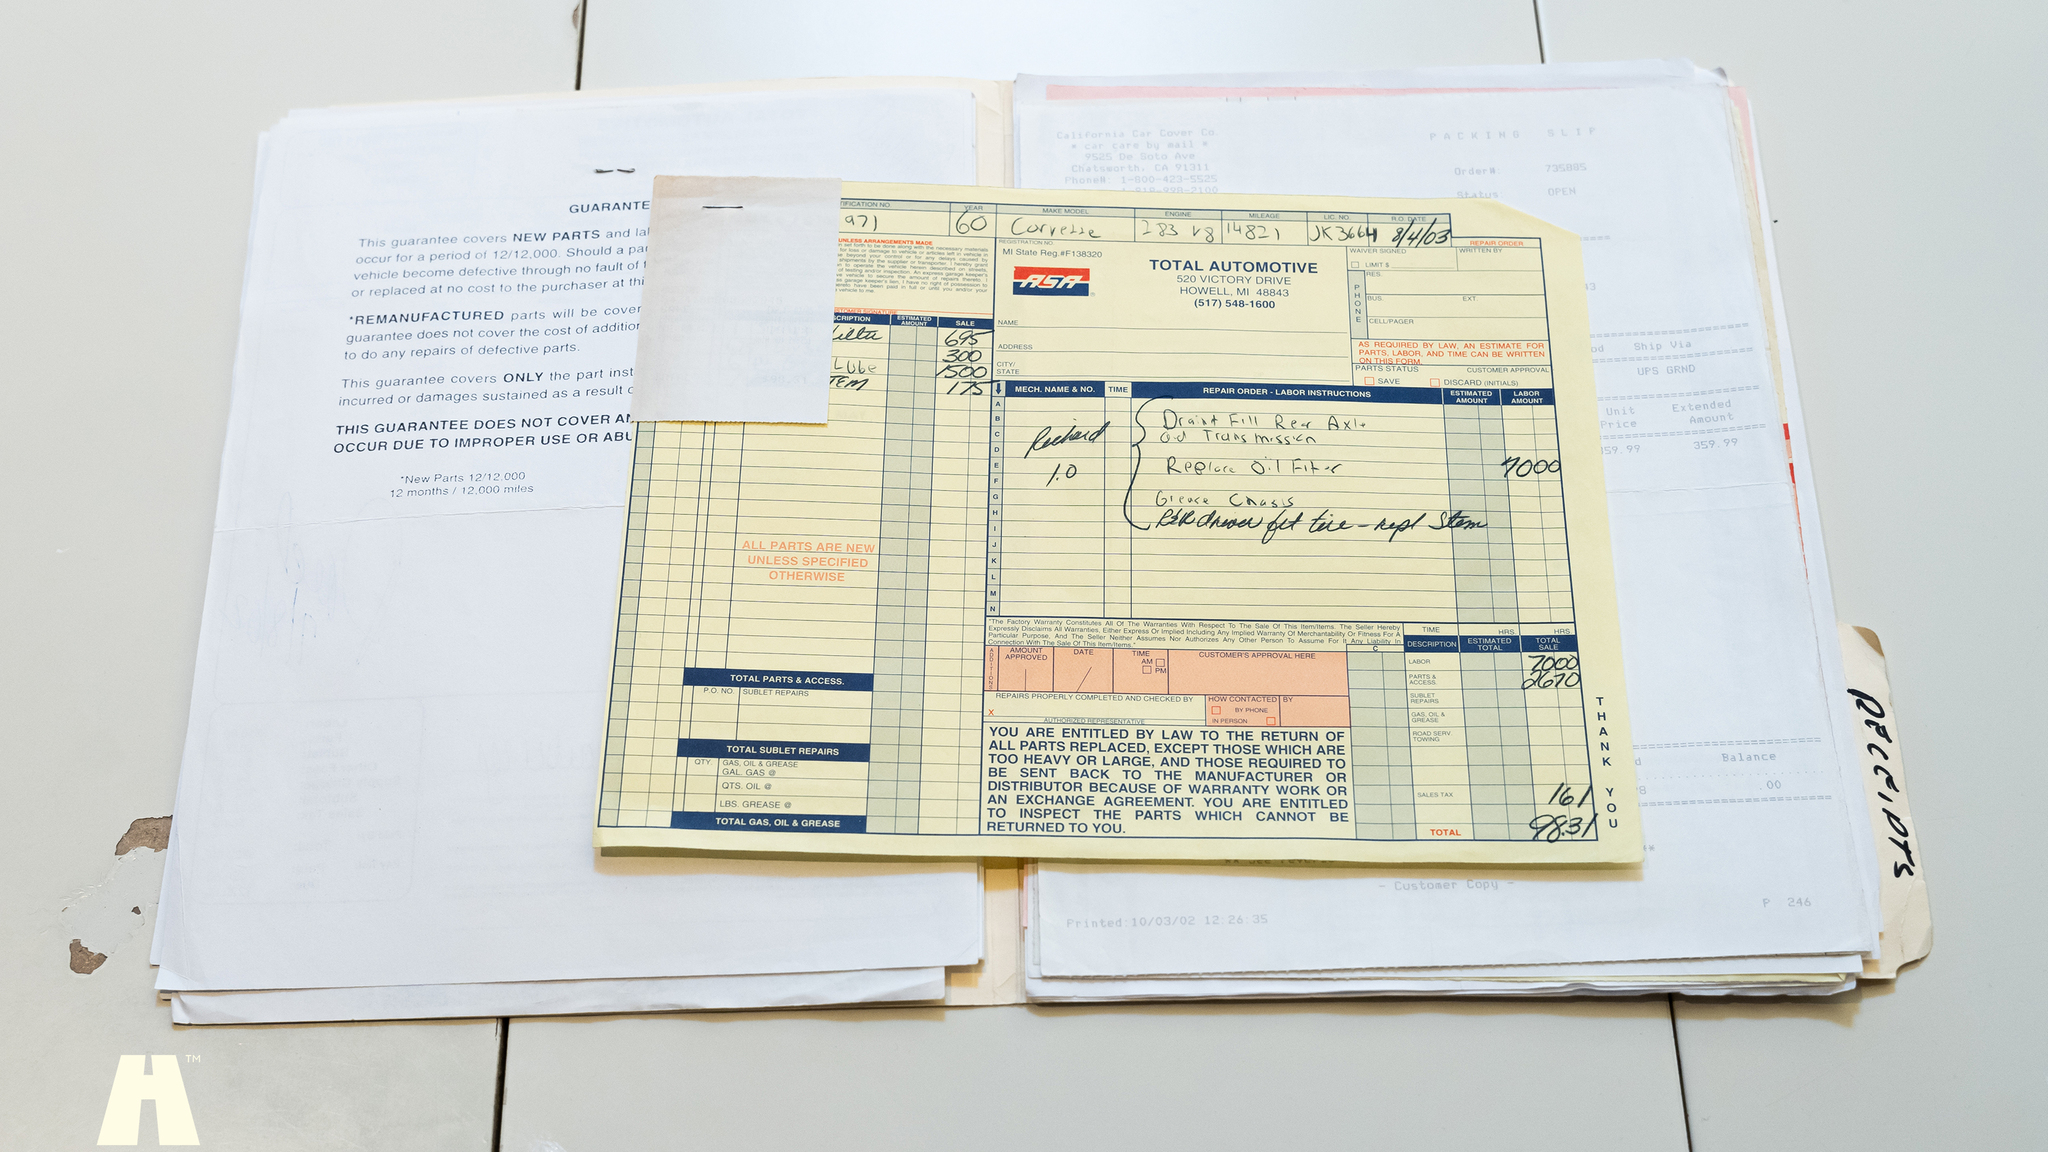 GUARANTE
This guarantee covers NEW PARTS and la
occur for a period of 12/12,000. Should a pa
vehicle become defective through no fault of
or replaced at no cost to the purchaser at thi
*REMANUFACTURED parts will be cover
guarantee does not cover the cost of addition
to do any repairs of defective parts.
This guarantee covers ONLY the part inst
incurred or damages sustained as a result o
THIS GUARANTEE DOES NOT COVER AN
OCCUR DUE TO IMPROPER USE OR ABU
*New Parts 12/12,000
12 months / 12,000 miles
TIFICATION NO. YEAR MAKE MODEL ENGINE MILEAGE LIC. NO. R.O. DATE
971 60 Corvette 283 V8 14821 JK3664 8/4/03
REPAIR ORDER
UNLESS ARRANGEMENTS MADE
REGISTRATION NO.
MI State Reg.#F138320
ASA
TOTAL AUTOMOTIVE
520 VICTORY DRIVE
HOWELL, MI 48843
(517) 548-1600
NAME
ADDRESS
CITY/
STATE
WAIVER SIGNED WRITTEN BY
LIMIT $
PHONE
RES.
BUS. EXT.
CELL/PAGER
AS REQUIRED BY LAW, AN ESTIMATE FOR
PARTS, LABOR, AND TIME CAN BE WRITTEN
ON THIS FORM.
PARTS STATUS CUSTOMER APPROVAL
SAVE DISCARD (INITIALS)
CRIPTION ESTIMATED AMOUNT SALE
695
300
Lube 1500
TEM 175
ALL PARTS ARE NEW
UNLESS SPECIFIED
OTHERWISE
TOTAL PARTS & ACCESS.
P.O. NO. SUBLET REPAIRS
TOTAL SUBLET REPAIRS
QTY. GAS, OIL & GREASE
GAL. GAS @
QTS. OIL @
LBS. GREASE @
TOTAL GAS, OIL & GREASE
MECH. NAME & NO. TIME REPAIR ORDER - LABOR INSTRUCTIONS ESTIMATED AMOUNT LABOR AMOUNT
A
B
C
D
E
F
G
H
I
J
K
L
M
N
Richard
1.0
Drain & Fill Rear Axle
and Transmission
Replace Oil Filter 7000
Grease Chasis
R&R driver frt tire - repl Stem
*The Factory Warranty Constitutes All Of The Warranties With Respect To The Sale Of This Item/Items. The Seller Hereby
Expressly Disclaims All Warranties, Either Express Or Implied Including Any Implied Warranty Of Merchantability Or Fitness For A
Particular Purpose, And The Seller Neither Assumes Nor Authorizes Any Other Person To Assume For It Any Liability In
Connection With The Sale Of This Item/Items.
ADDITIONS
AMOUNT APPROVED DATE TIME AM PM CUSTOMER'S APPROVAL HERE
REPAIRS PROPERLY COMPLETED AND CHECKED BY HOW CONTACTED BY
X BY PHONE
AUTHORIZED REPRESENTATIVE IN PERSON
YOU ARE ENTITLED BY LAW TO THE RETURN OF
ALL PARTS REPLACED, EXCEPT THOSE WHICH ARE
TOO HEAVY OR LARGE, AND THOSE REQUIRED TO
BE SENT BACK TO THE MANUFACTURER OR
DISTRIBUTOR BECAUSE OF WARRANTY WORK OR
AN EXCHANGE AGREEMENT. YOU ARE ENTITLED
TO INSPECT THE PARTS WHICH CANNOT BE
RETURNED TO YOU.
TIME HRS. HRS.
C DESCRIPTION ESTIMATED TOTAL TOTAL SALE
LABOR 7000
PARTS & ACCESS. 2670
SUBLET REPAIRS
GAS, OIL & GREASE
ROAD SERV TOWING
SALES TAX 161
TOTAL 98.31
THANK YOU
California Car Cover Co.
* car care by mail *
9525 De Soto Ave
Chatsworth, CA 91311
Phone#: 1-800-423-5525
1-818-998-2100
PACKING SLIP
Order#: 735885
Status: OPEN
Ship Via
UPS GRND
Unit Price Extended Amount
359.99
Balance
.00
- Customer Copy -
P 246
Printed:10/03/02 12:26:35
RECEIPTS
H™